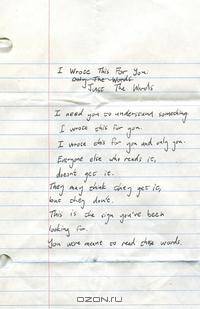 I Wrote This For You:
Only The Words
Just The Words
I need you to understand something.
I wrote this for you.
I wrote this for you and only you.
Everyone else who reads it,
doesn't get it.
They may think they get it,
but they don't.
This is the sign you've been
looking for.
You were meant to read these words.
OZON.RU